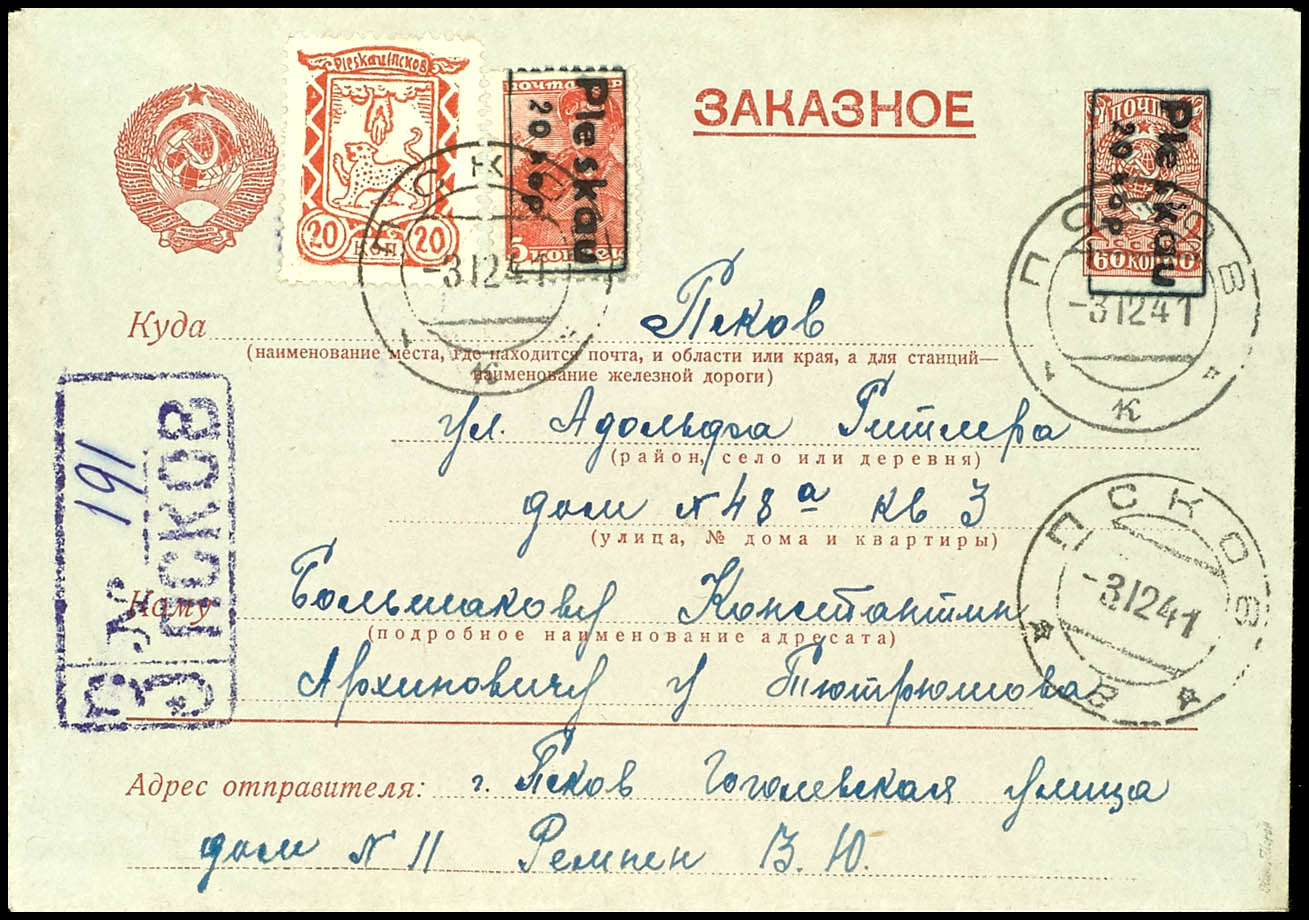 Pleskau/Псков
20 20
коп
почта
Pleskau
20 коp
5 копеек
ЗАКАЗНОЕ
ПОЧТА
Pleskau
20 коp
60 КОП 60
ПСКОВ
-31241
к
ПСКОВ
-31241
к
Куда Псков
(наименование места, где находится почта, и области или края, а для станций—
наименование железной дороги)
ул. Адольфа Гитлера
(район, село или деревня)
дом № 48а кв 3
(улица, № дома и квартиры)
Кому Большакову Константин
(подробное наименование адресата)
Архиповичу у Тютрюмова
З ПСКОВ
№ 191
ПСКОВ
-31241
В
Адрес отправителя: г. Псков Гоголевская улица
дом № 11 Ремпен В. Ю.